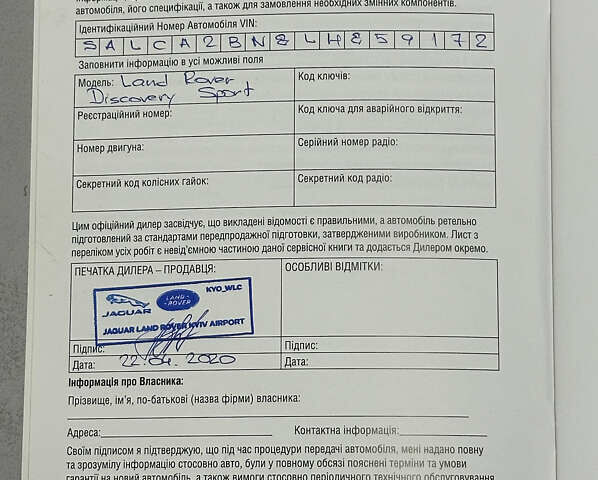 автомобіля, його специфікації, а також для замовлення необхідних змінних компонентів.
Ідентифікаційний Номер Автомобіля VIN:
SALCA2BN2LH859172
Заповнити інформацію в усі можливі поля
Модель: Land Rover
Discovery Sport
Код ключів:
Реєстраційний номер:
Код ключа для аварійного відкриття:
Номер двигуна:
Серійний номер радіо:
Секретний код колісних гайок:
Секретний код радіо:
Цим офіційний дилер засвідчує, що викладені відомості є правильними, а автомобіль ретельно
підготовлений за стандартами передпродажної підготовки, затвердженими виробником. Лист з
переліком усіх робіт є невід'ємною частиною даної сервісної книги та додається Дилером окремо.
ПЕЧАТКА ДИЛЕРА – ПРОДАВЦЯ:
ОСОБЛИВІ ВІДМІТКИ:
KYO_WLC
JAGUAR
LAND-
ROVER
JAGUAR LAND ROVER KYIV AIRPORT
Підпис:
Підпис:
Дата: 22.04.2020
Дата:
Інформація про Власника:
Прізвище, ім'я, по-батькові (назва фірми) власника:
Адреса:
Контактна інформація:
Своїм підписом я підтверджую, що під час процедури передачі автомобіля, мені надано повну
та зрозумілу інформацію стосовно авто, були у повному обсязі пояснені терміни та умови
гарантії на новий автомобіль, а також вимоги стосовно періодичного технічного обслуговування